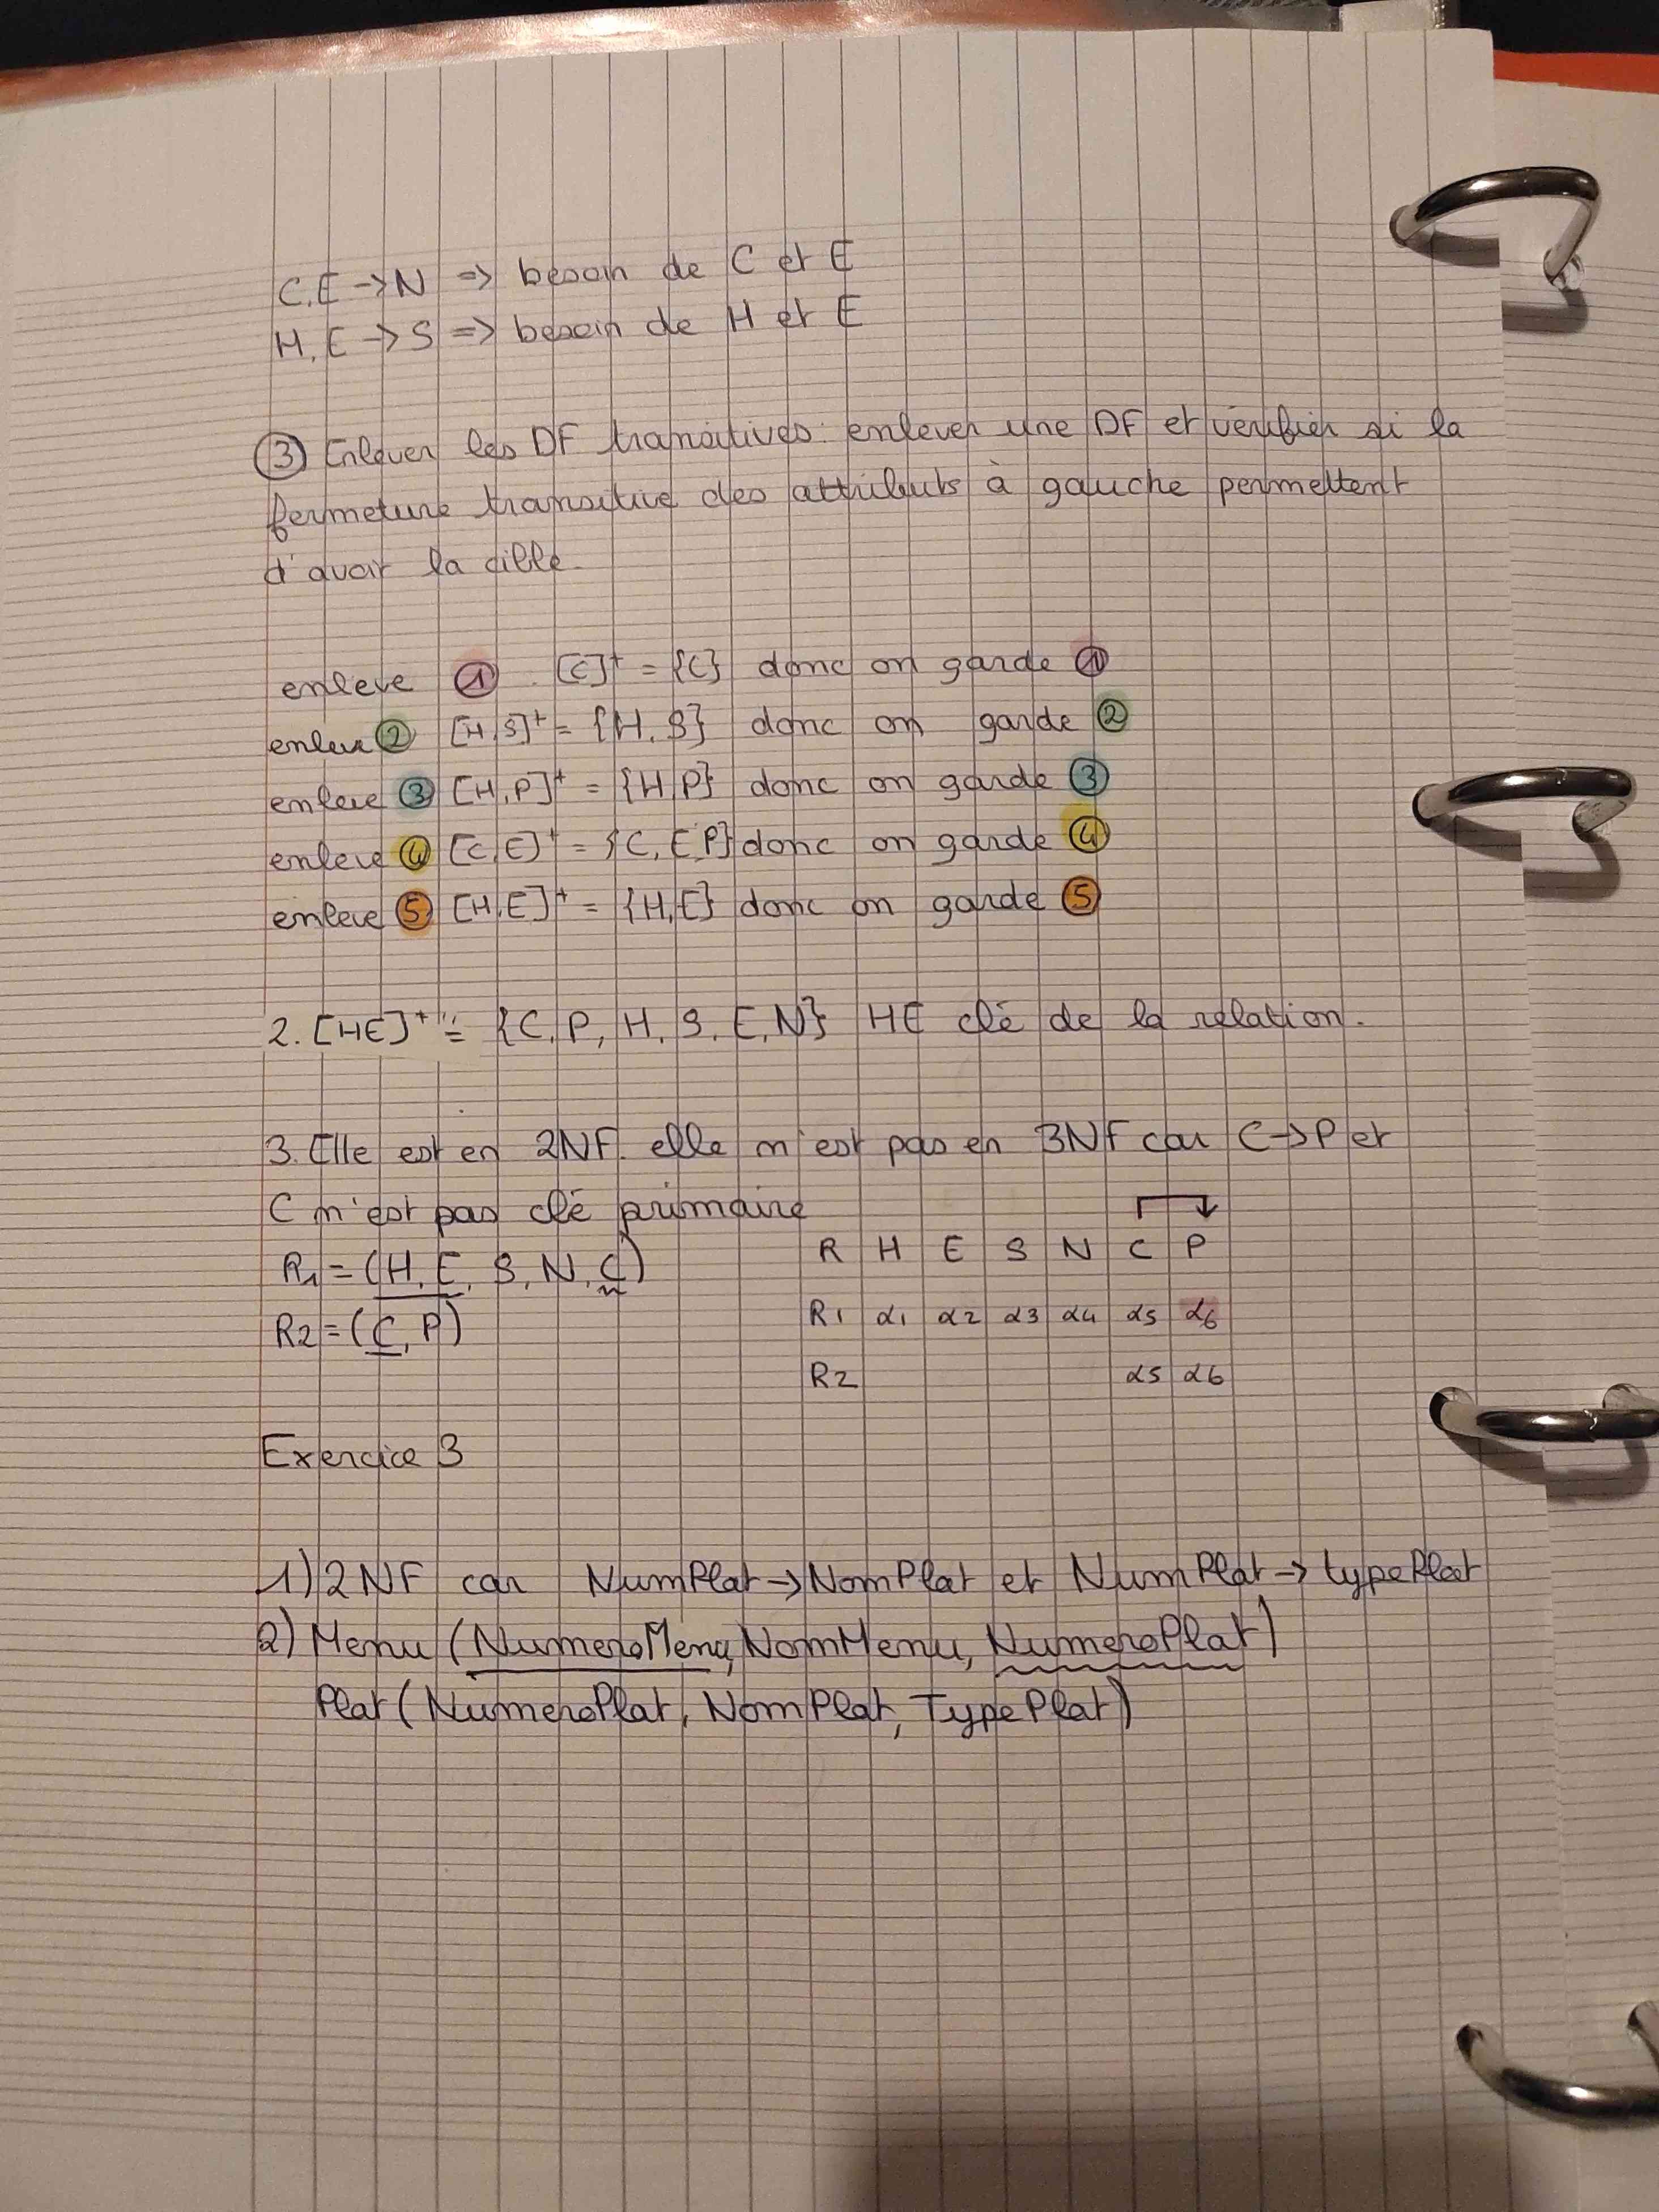 C,E → N => besoin de C et E
H,E → S => besoin de H et E
③ Enlever les DF transitives : enlever une DF et vérifier si la
fermeture transitive des attributs à gauche permettent
d'avoir la cible.
enleve ① [C]⁺ = {C} donc on garde ①
enleve ② [H,S]⁺ = {H, S} donc on garde ②
enleve ③ [H,P]⁺ = {H,P} donc on garde ③
enleve ④ [C,E]⁺ = {C, E,P} donc on garde ④
enleve ⑤ [H,E]⁺ = {H,E} donc on garde ⑤
2. [HE]⁺ = {C, P, H, S, E, N} HE clé de la relation.
3. Elle est en 2NF. elle n'est pas en 3NF car C → P et
C n'est pas clé primaire
R1 = (H, E, S, N, C)
R2 = (C, P)
R H E S N C P
R1 α1 α2 α3 α4 α5 α6
R2 α5 α6
Exercice 3
1) 2NF car NumPlat → NomPlat et NumPlat → typePlat
2) Menu (NumeroMenu, NomMenu, NumeroPlat)
Plat (NumeroPlat, NomPlat, TypePlat)